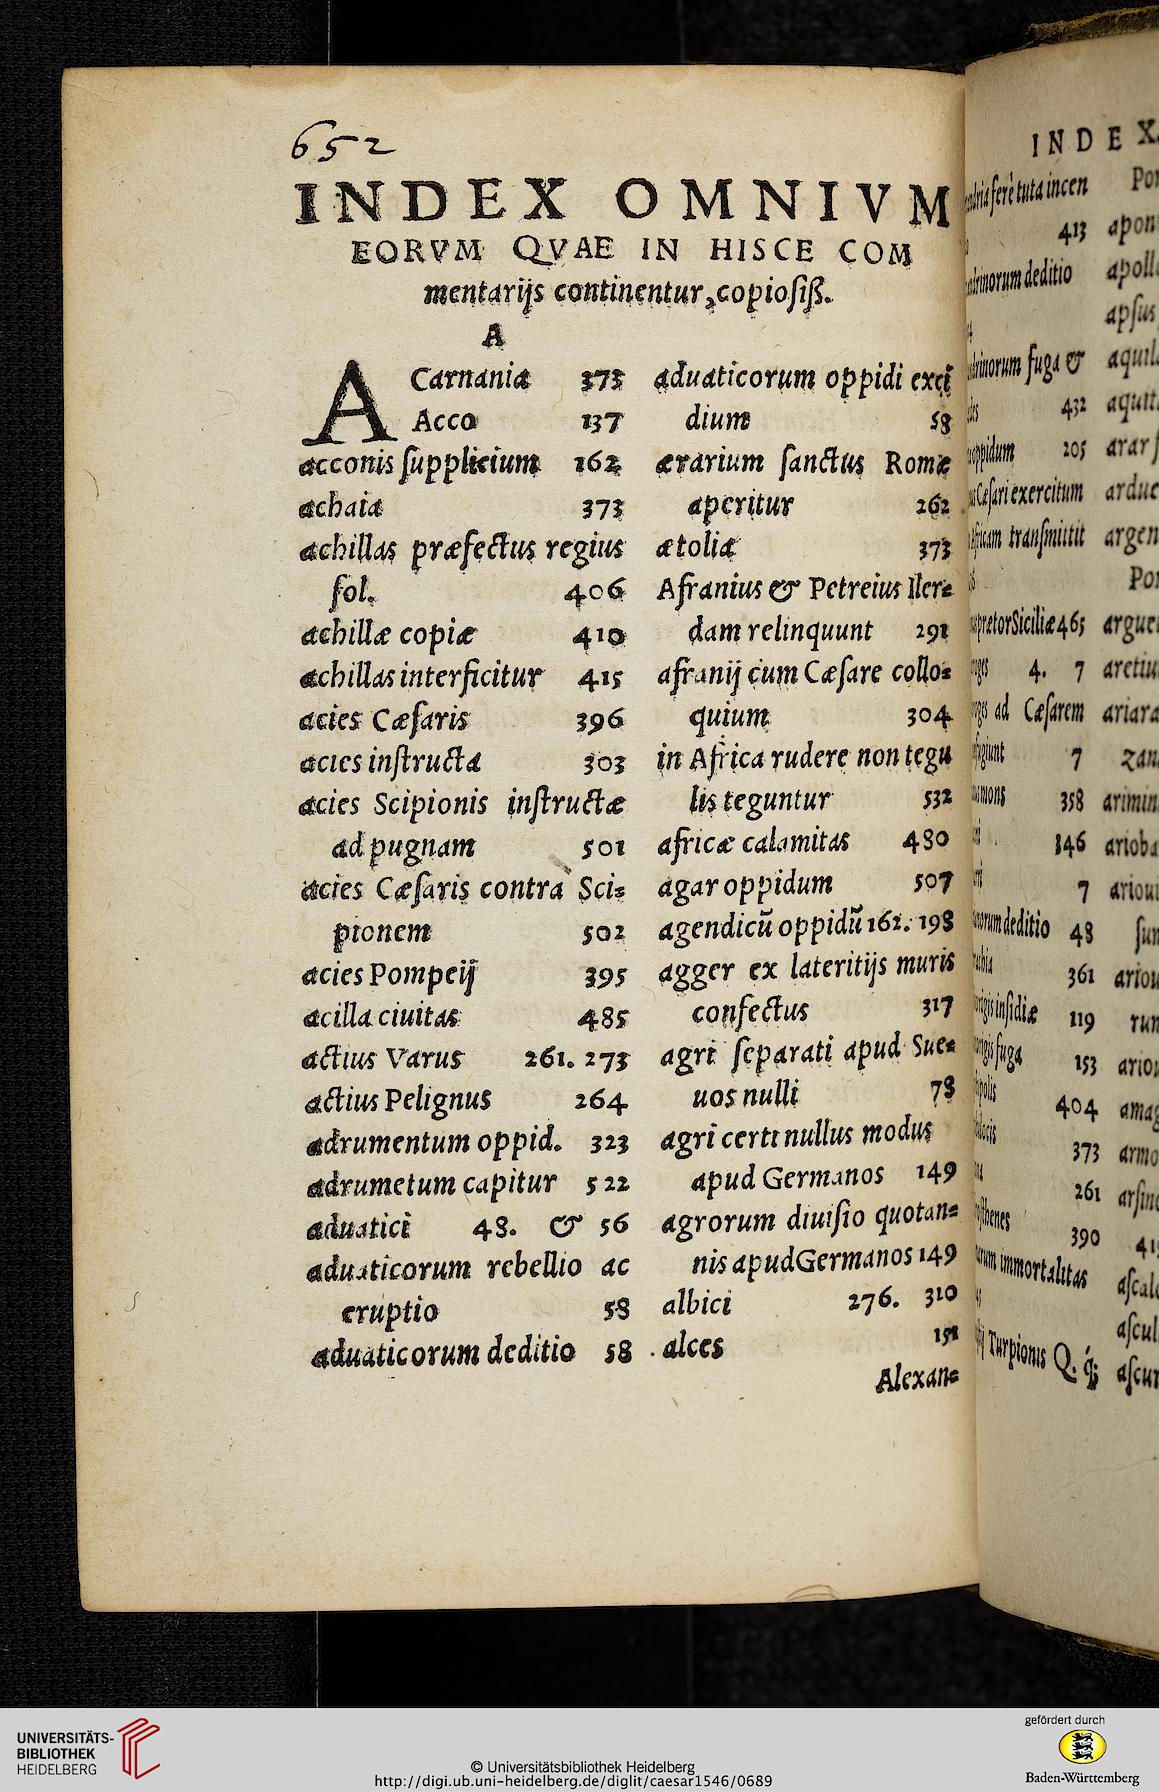 652
INDEX OMNIVM
EORVM QVAE IN HISCE COM
mentarijs continentur, copiosiß.
A
ACarnania 373
Acco 137
acconis supplicium 162
achaia 373
achillas præfectus regius
fol. 406
achillæ copiæ 410
achillas interficitur 415
acies Cæsaris 396
acies instructa 303
acies Scipionis instructæ
ad pugnam 501
acies Cæsaris contra Sci=
pionem 502
acies Pompeij 395
acilla ciuitas 485
actius Varus 261. 273
actius Pelignus 264
adrumentum oppid. 323
adrumetum capitur 522
aduatici 48. & 56
aduaticorum rebellio ac
eruptio 58
aduaticorum deditio 58
aduaticorum oppidi exci
dium 58
ærarium sanctus Romæ
aperitur 262
ætolia 373
Afranius & Petreius Iler=
dam relinquunt 291
afranij cum Cæsare collo=
quium 304
in Africa rudere non tegu
lis teguntur 532
africæ calamitas 480
agar oppidum 507
agendicū oppidū 162. 198
agger ex lateritijs muris
confectus 317
agri separati apud Sue=
uos nulli 78
agri certi nullus modus
apud Germanos 149
agrorum diuisio quotan=
nis apud Germanos 149
albici 276. 310
alces 151
Alexan=
INDEX
fere tuta incen
413
deditio
fuga &
432
205
Cæsari exercitum
transmittit
prætor Siciliæ 465
4. 7
ad Cæsarem
7
mons 358
346
7
deditio 48
361
insidiæ 119
fuga 153
404
373
261
390
immortalitas
Turpionis Q. q;
UNIVERSITÄTS-
BIBLIOTHEK
HEIDELBERG
© Universitätsbibliothek Heidelberg
http://digi.ub.uni-heidelberg.de/diglit/caesar1546/0689
gefördert durch
Baden-Württemberg